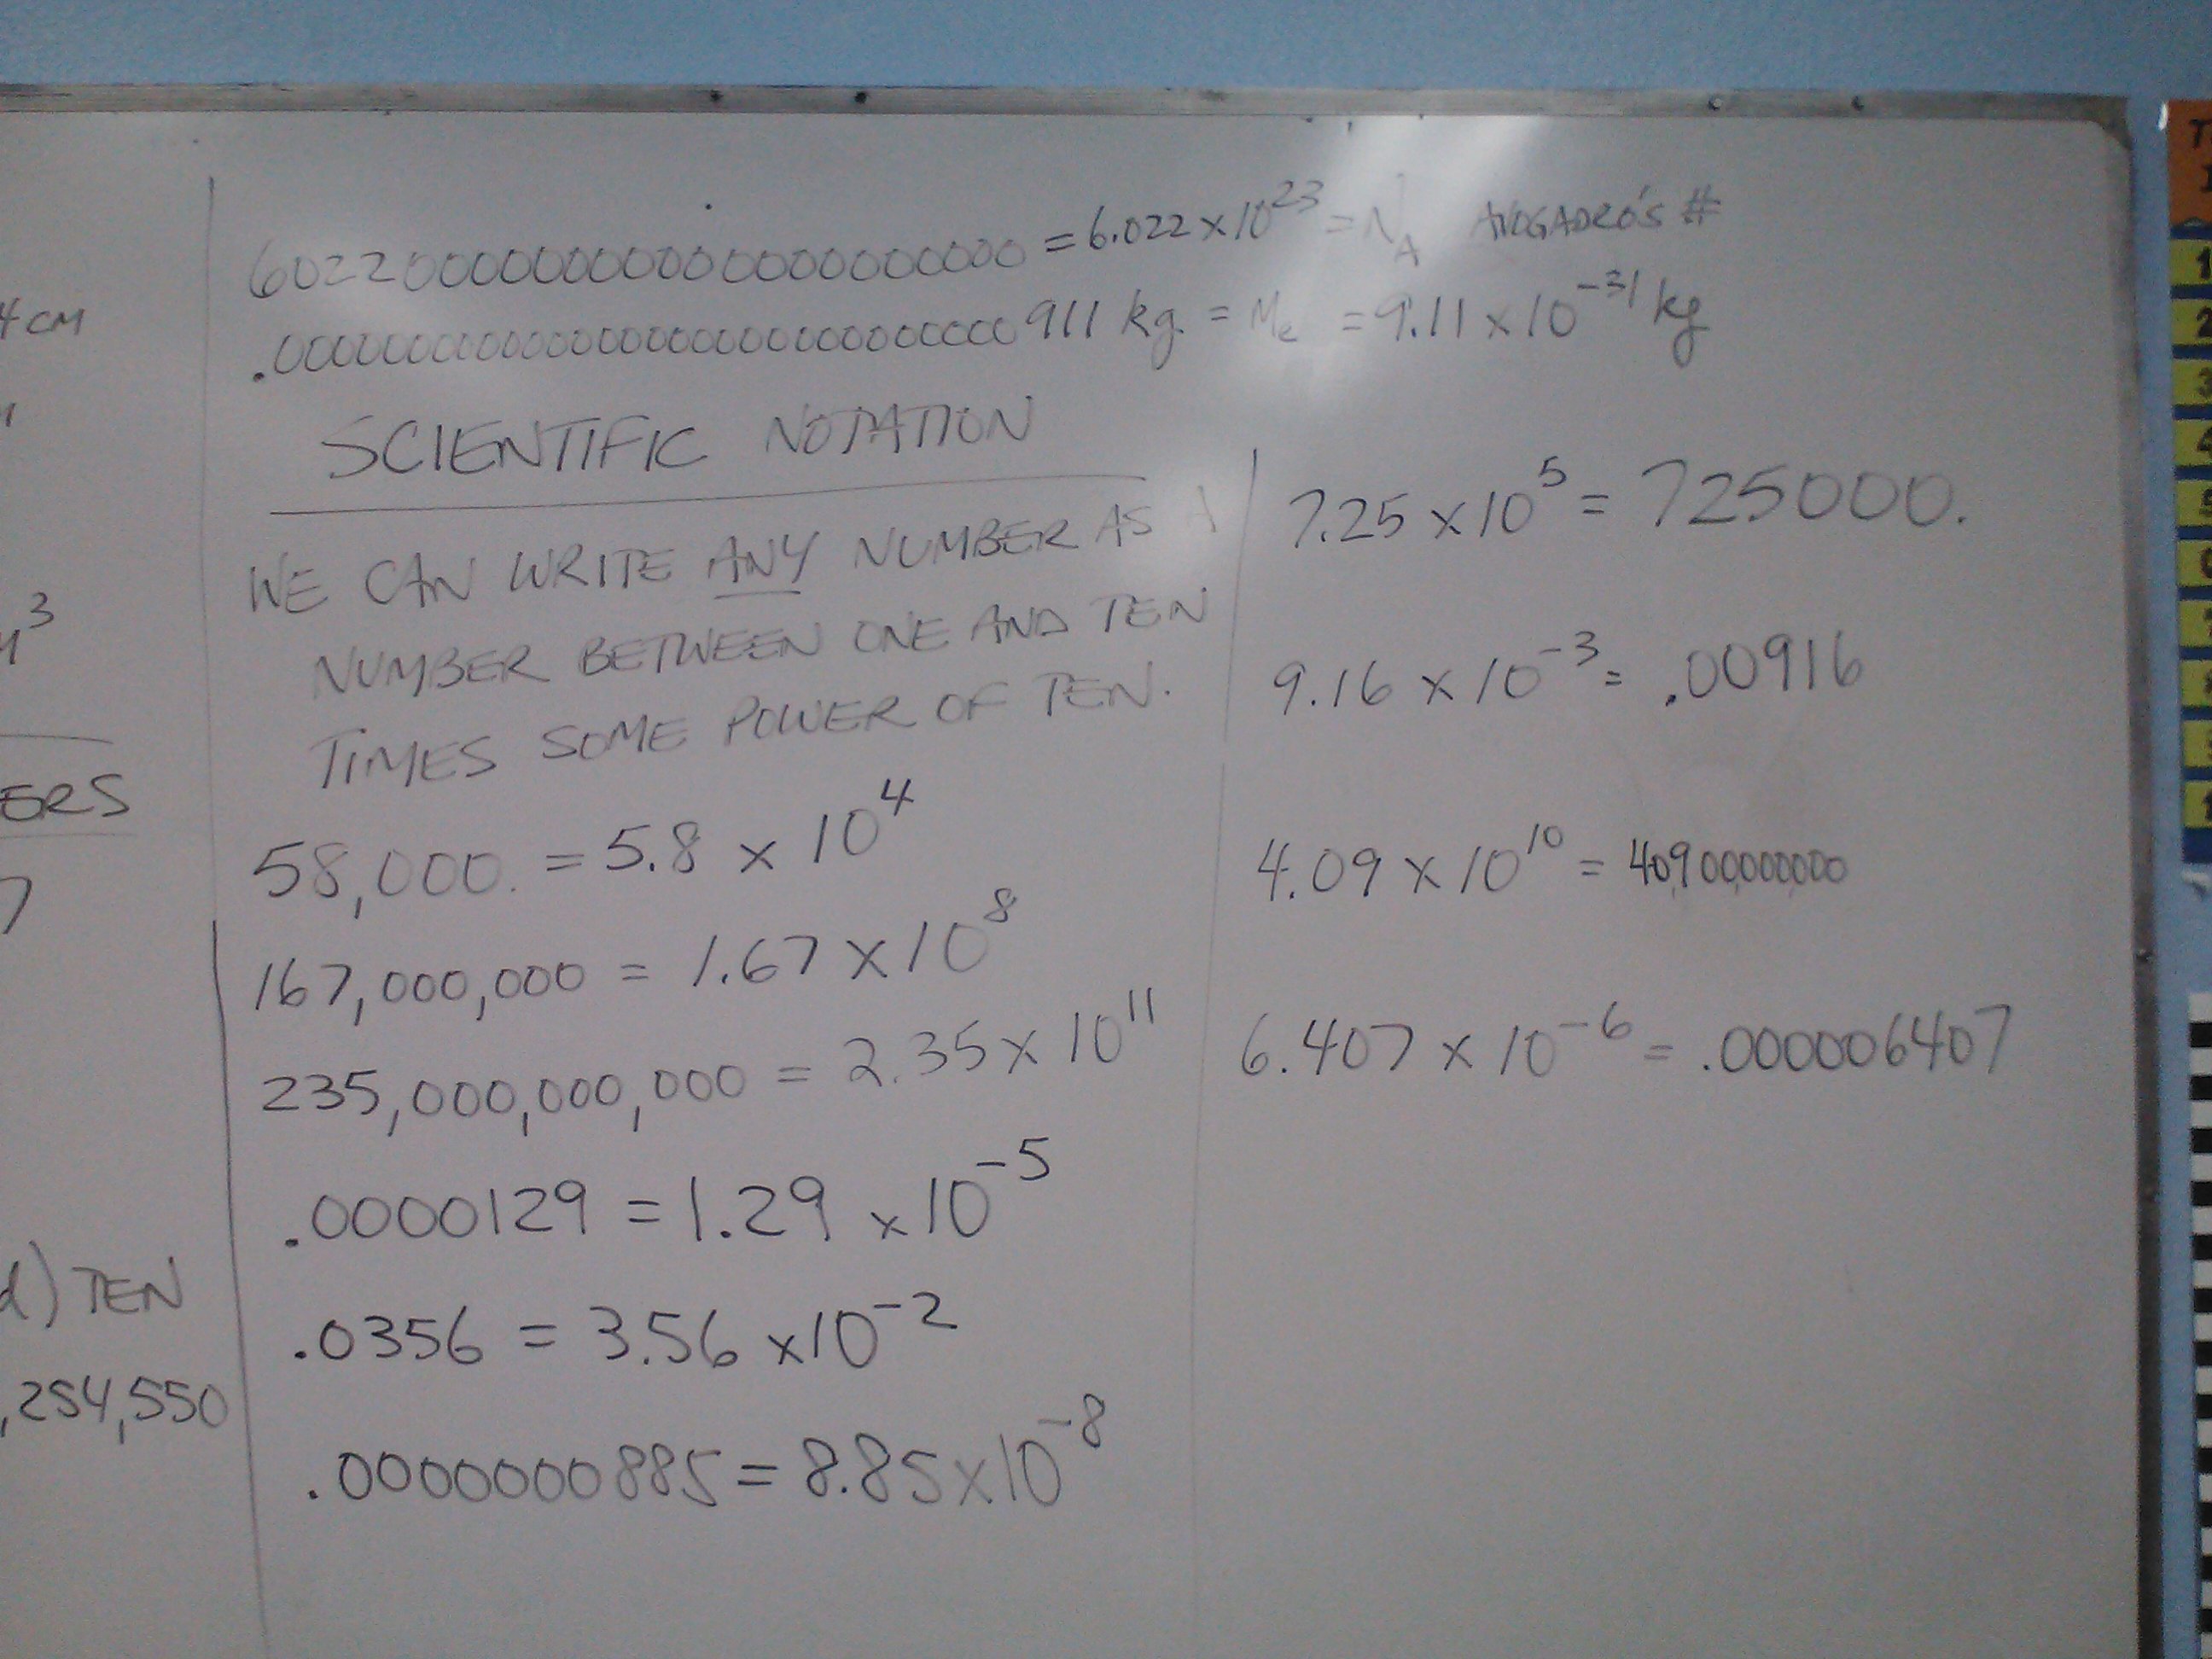 4 CM
M³
ERS
7
d) TEN
,254,550
602200000000000000000000 = 6.022 x 10²³ = N_A AVOGADRO'S #
.000000000000000000000000000000911 kg. = Me = 9.11 x 10⁻³¹ kg
SCIENTIFIC NOTATION
WE CAN WRITE ANY NUMBER AS A
NUMBER BETWEEN ONE AND TEN
TIMES SOME POWER OF TEN.
58,000. = 5.8 x 10⁴
167,000,000 = 1.67 x 10⁸
235,000,000,000 = 2.35 x 10¹¹
.0000129 = 1.29 x 10⁻⁵
.0356 = 3.56 x 10⁻²
.0000000885 = 8.85 x 10⁻⁸
7.25 x 10⁵ = 725000.
9.16 x 10⁻³ = .00916
4.09 x 10¹⁰ = 40,900,000,000
6.407 x 10⁻⁶ = .000006407